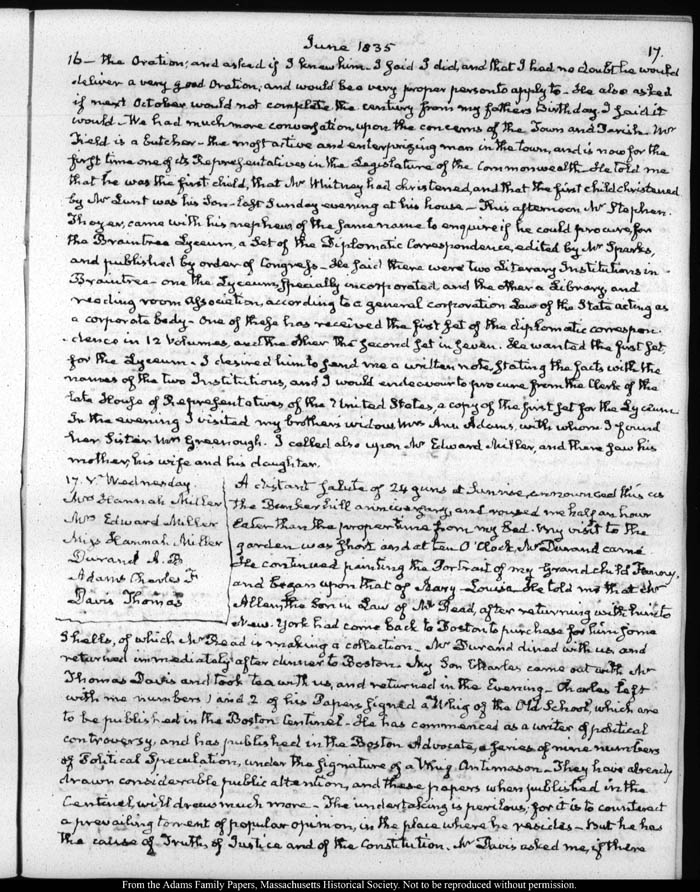 June 1835
17.
16 — the Oration; and asked if I knew him. I said I did, and that I had no doubt he would
deliver a very good Oration, and would be a very proper person to apply to — He also asked
if next October would not complete the century from my fathers birthday. I said it
would — We had much more conversation, upon the concerns of the Town and Parish — Mr
Field is a butcher — the most active and enterprizing man in the town, and is now for the
first time one of its Representatives in the Legislature of the Commonwealth — He told me
that he was the first child, that Mr Whitney had christened, and that the first child christened
by Mr Lunt was his Son — last Sunday evening at his house — This afternoon Mr Stephen
Thayer, came with his nephew of the same name to enquire if he could procure, for
the Braintree Lyceum, a Set of the Diplomatic Correspondence, edited by Mr Sparks,
and published by order of Congress — He said there were two Literary Institutions in
Braintree — one the Lyceum, specially incorporated and the other a Library, and
reading room Association, according to a general corporation Law of the State acting as
a corporate body — One of these has received the first Set of the diplomatic correspon-
dence in 12 Volumes, and the other the second Set in seven. He wanted the first Set,
for the Lyceum. I desired him to send me a written note, stating the facts with the
names of the two Institutions, and I would endeavour to procure from the Clerk of the
late House of Representatives of the United States, a copy of the first Set for the Lyceum
In the evening I visited my brothers widow Mrs Ann Adams, with whom I found
her Sister Mrs Greenough. I called also upon Mr Edward Miller, and there saw his
mother, his wife and his daughter.
17. V. Wednesday.
Mrs Hannah Miller
Mrs Edward Miller
Miss Hannah Miller
Durand A. B
Adams Charles F
Davis Thomas
A distant salute of 24 guns at Sunrise, announced this as
the Bunker hill anniversary, and roused me half an hour
later than the proper time from my bed. My visit to the
garden was short and at ten O'Clock, Mr Durand came
He continued painting the Portrait of my Grandchild Fanny,
and began upon that of Mary-Louisa. He told me that Mr
Allen, the Son in Law of Mr Read, after returning with him to
New-York had come back to Boston to purchase for him some
Shells, of which Mr Read is making a collection — Mr Durand dined with us, and
returned immediately after dinner to Boston — My Son Charles came out with Mr
Thomas Davis and took tea with us, and returned in the Evening — Charles left
with me numbers 1 and 2 of his Papers signed a Whig of the Old School, which are
to be published in the Boston Centinel — He has commenced as a writer of political
controversy, and has published in the Boston Advocate, a series of nine numbers
of Political Speculation, under the signature of a Whig Antimason — They have already
drawn considerable public attention, and these papers when published in the
Centinel will draw much more — The undertaking is perilous, for it is to counteract
a prevailing torrent of popular opinion, in the place where he resides — But he has
the cause of Truth, of Justice and of the Constitution. Mr Davis asked me, if there
From the Adams Family Papers, Massachusetts Historical Society. Not to be reproduced without permission.